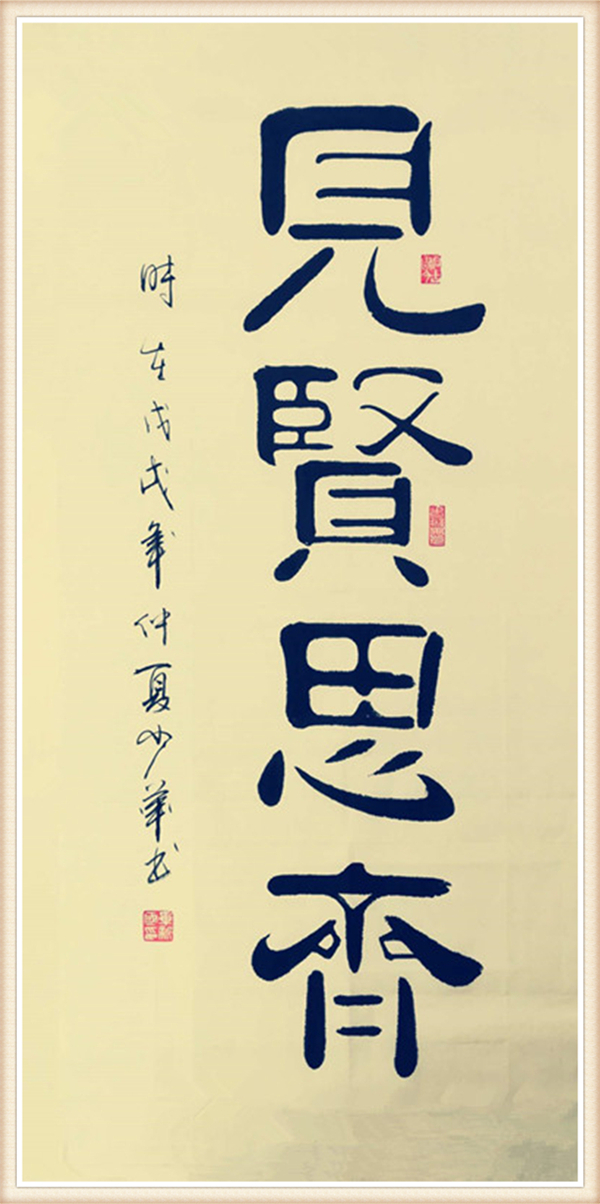 見賢思齊
時在戊戌年仲夏少華书